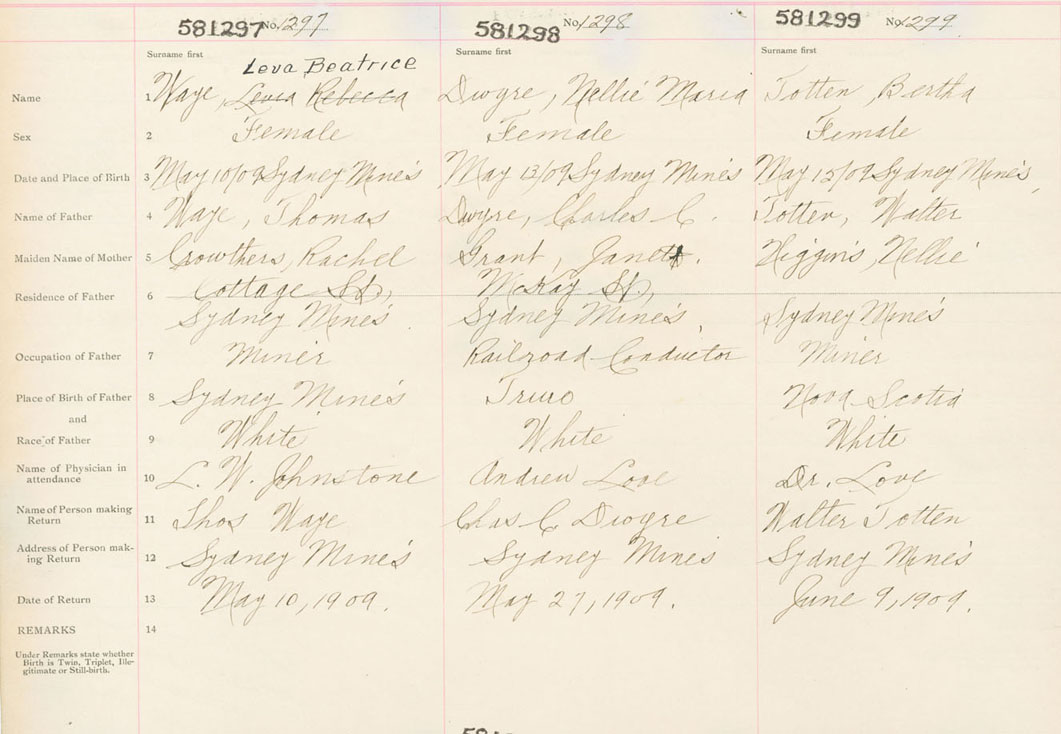 581297 No. 1297 581298 No. 1298 581299 No. 1299
Surname first Surname first Surname first
Leva Beatrice
Name 1 Waye, Levia Rebecca Dwyre, Nellie Maria Totten, Bertha
Sex 2 Female Female Female
Date and Place of Birth 3 May 10/09 Sydney Mines May 13/09 Sydney Mines May 15/09 Sydney Mines
Name of Father 4 Waye, Thomas Dwyre, Charles C. Totten, Walter
Maiden Name of Mother 5 Crowthers, Rachel Grant, Janett. Higgins, Nellie
Cottage St., McKay St,
Residence of Father 6
Sydney Mines Sydney Mines, Sydney Mines
Occupation of Father 7 Miner Railroad Conductor Miner
Place of Birth of Father 8 Sydney Mines Truro Nova Scotia
and
Race of Father 9 White White White
Name of Physician in
attendance 10 L. W. Johnstone Andrew Love Dr. Love
Name of Person making
Return 11 Thos Waye Chas C Dwyre Walter Totten
Address of Person mak-
ing Return 12 Sydney Mines Sydney Mines Sydney Mines
Date of Return 13 May 10, 1909. May 27, 1909. June 9, 1909.
REMARKS 14
Under Remarks state whether
Birth is Twin, Triplet, Ille-
gitimate or Still-birth.